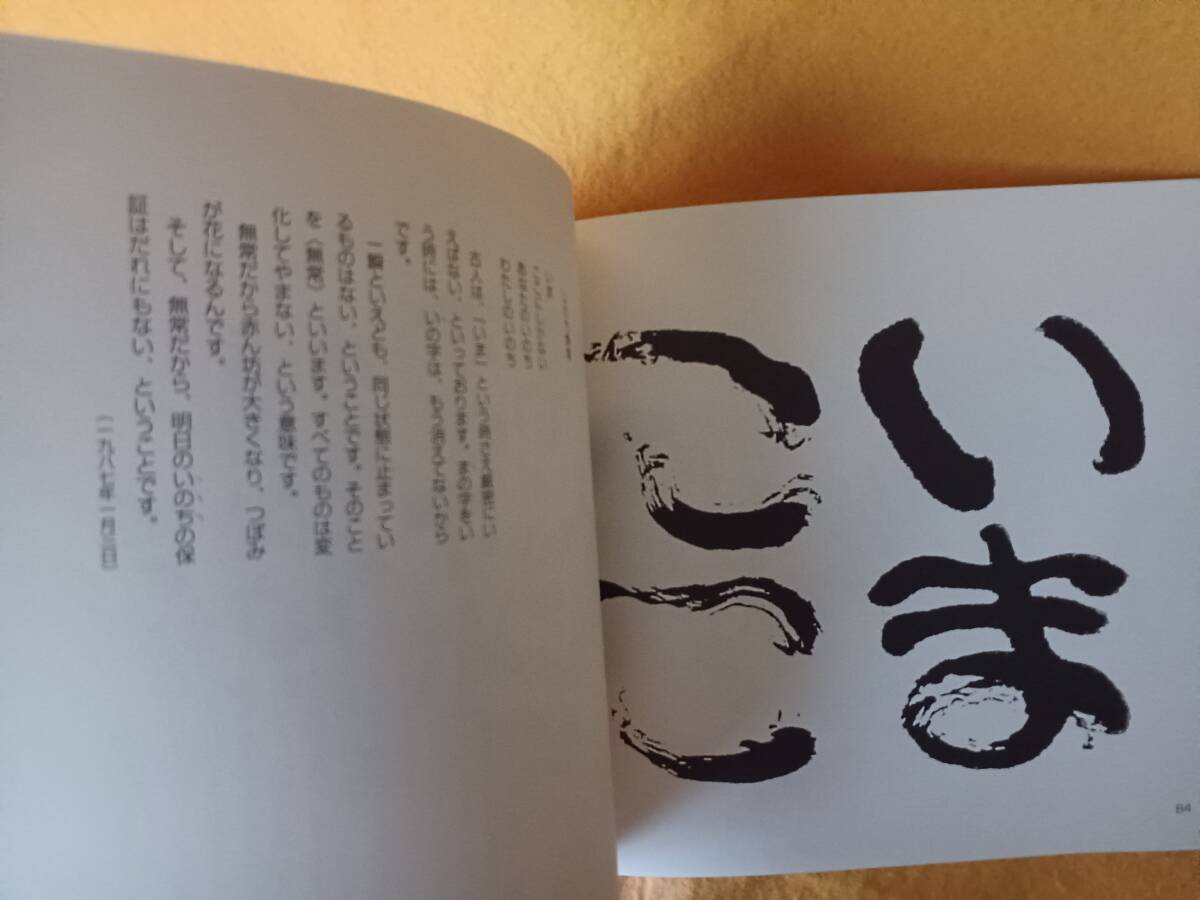 いま
ここ
84
いま
ここにしかない
あなたのいのち
わたしのいのち
古人は、「いま」という時さえ厳密にい
えばない、といっております。まの字をい
う時には、いの字は、もう消えてないから
です。
一瞬といえども、同じ状態に止まってい
るものはない、ということです。そのこと
を〈無常〉といいます。すべてのものは変
化してやまない、という意味です。
無常だから赤ん坊が大きくなり、つぼみ
が花になるんです。
そして、無常だから、明日のいのちの保
証はだれにもない、ということです。
（一九八七年一月三日）